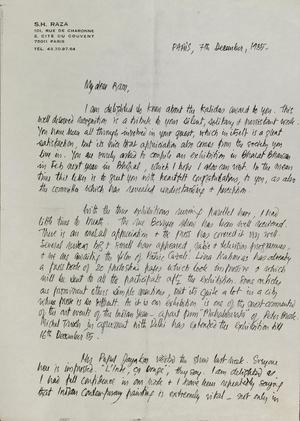 S.H. RAZA
101, RUE DE CHARONNE
5, CITÉ DU COUVENT
75011 PARIS
TÉL. 43.70.87.64
PARIS, 7th December, 1985.
My dear Ram,
I am delighted to know about the Kalidas award to you. This
well deserved recognition is a tribute to your silent, solitary & persistent work.
You have been all through involved in your quest, which in itself is a great
satisfaction, but is nice that appreciation also comes from the society you
live in. You are surely asked to compile an exhibition in Bharat Bhavan
in Feb next year in Bhopal, which I hope I also can visit. In the mean
time this letter is to greet you most heartfelt congratulations, to you, as also
the committee which has revealed understanding & perception.
With the two exhibitions running parallel here, I had
little time to breathe. The show has been well received.
There is an overall appreciation & the press has covered it very well
Several reviews big & small have appeared, radio & television programmes,
& we are awaiting the film of
a press book of 20 photostat pages which look impressive & which
will be sent to all the participants after the exhibition. Some articles
are prominent, others simple mention, but its quite a lot in a city
where press is so difficult. As it is our exhibition is one of the most commented
of the art events of the Indian year. apart from "Mahabharata" of Peter Brook.
Michel Troche in agreement with Delhi has extended the exhibition till
16th December 85.
Mrs Pupul Jayakar visited the show last week. Everyone
here is impressed. "L'Inde, ça bouge", they say. I am delighted as
I had full confidence in our work & I have been repeatedly saying
that Indian Contemporary painting is extremely vital – not only in